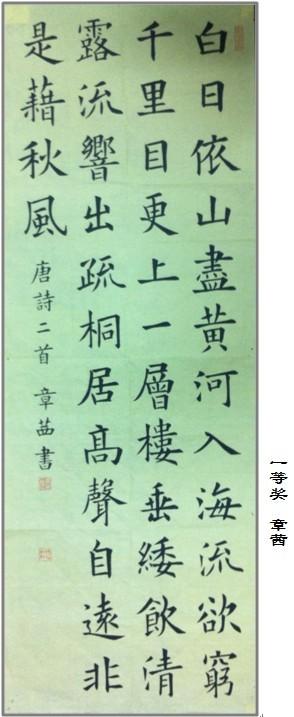 白日依山盡黄河入海流欲窮
千里目更上一層樓垂緌飲清
露流響出疏桐居髙聲自遠非
是藉秋風
唐詩二首 章茜書
一等奖 章茜